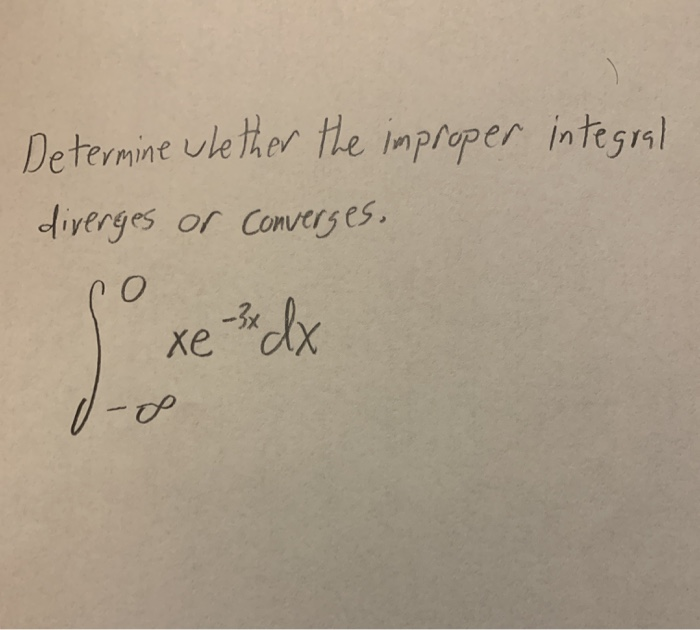 Determine whether the improper integral
diverges or converges.
∫_{-∞}^{0} xe^{-3x} dx